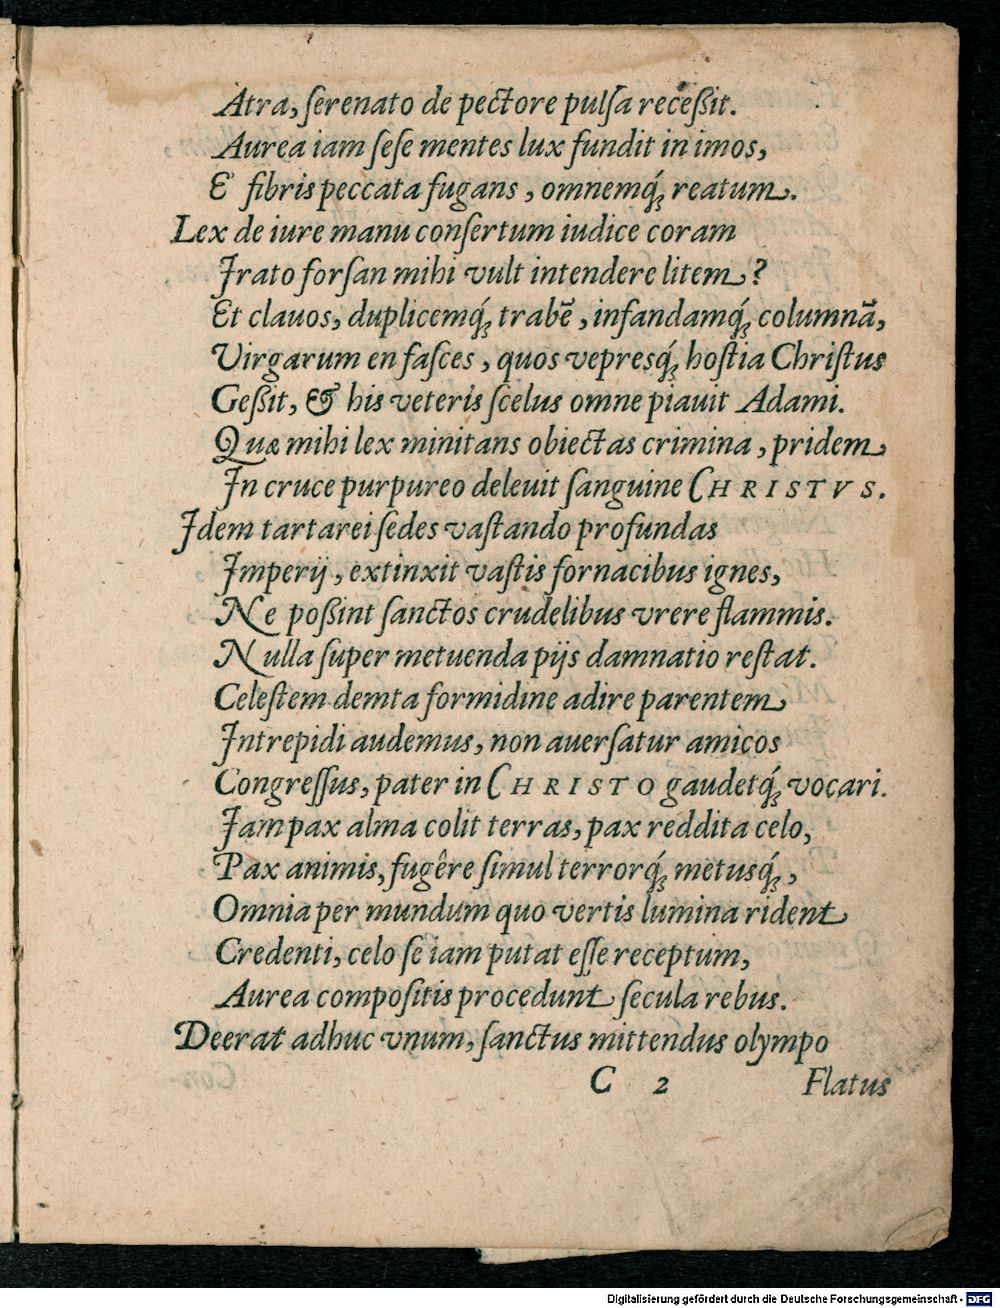 Atra, ſerenato de pectore pulſa receßit.
Aurea iam ſeſe mentes lux fundit in imos,
E fibris peccata fugans, omnemq́; reatum.
Lex de iure manu conſertum iudice coram
Irato forſan mihi vult intendere litem?
Et clauos, duplicemq́; trabē, infandamq́; columnā,
Virgarum en faſces, quos vepresq́; hoſtia Chriſtus
Geßit, & his veteris ſcelus omne piauit Adami.
Quæ mihi lex minitans obiectas crimina, pridem
In cruce purpureo deleuit ſanguine CHRISTVS.
Idem tartarei ſedes vaſtando profundas
Imperij, extinxit vaſtis fornacibus ignes,
Ne poßint ſanctos crudelibus vrere flammis.
Nulla ſuper metuenda pijs damnatio reſtat.
Celeſtem demta formidine adire parentem
Intrepidi audemus, non auerſatur amicos
Congreſſus, pater in CHRISTO gaudetq́; vocari.
Iam pax alma colit terras, pax reddita celo,
Pax animis, fugêre ſimul terrorq́; metusq́;,
Omnia per mundum quo vertis lumina rident
Credenti, celo ſe iam putat eſſe receptum,
Aurea compoſitis procedunt ſecula rebus.
Deerat adhuc vnum, ſanctus mittendus olympo
C 2 Flatus
Digitalisierung gefördert durch die Deutsche Forschungsgemeinschaft - DFG